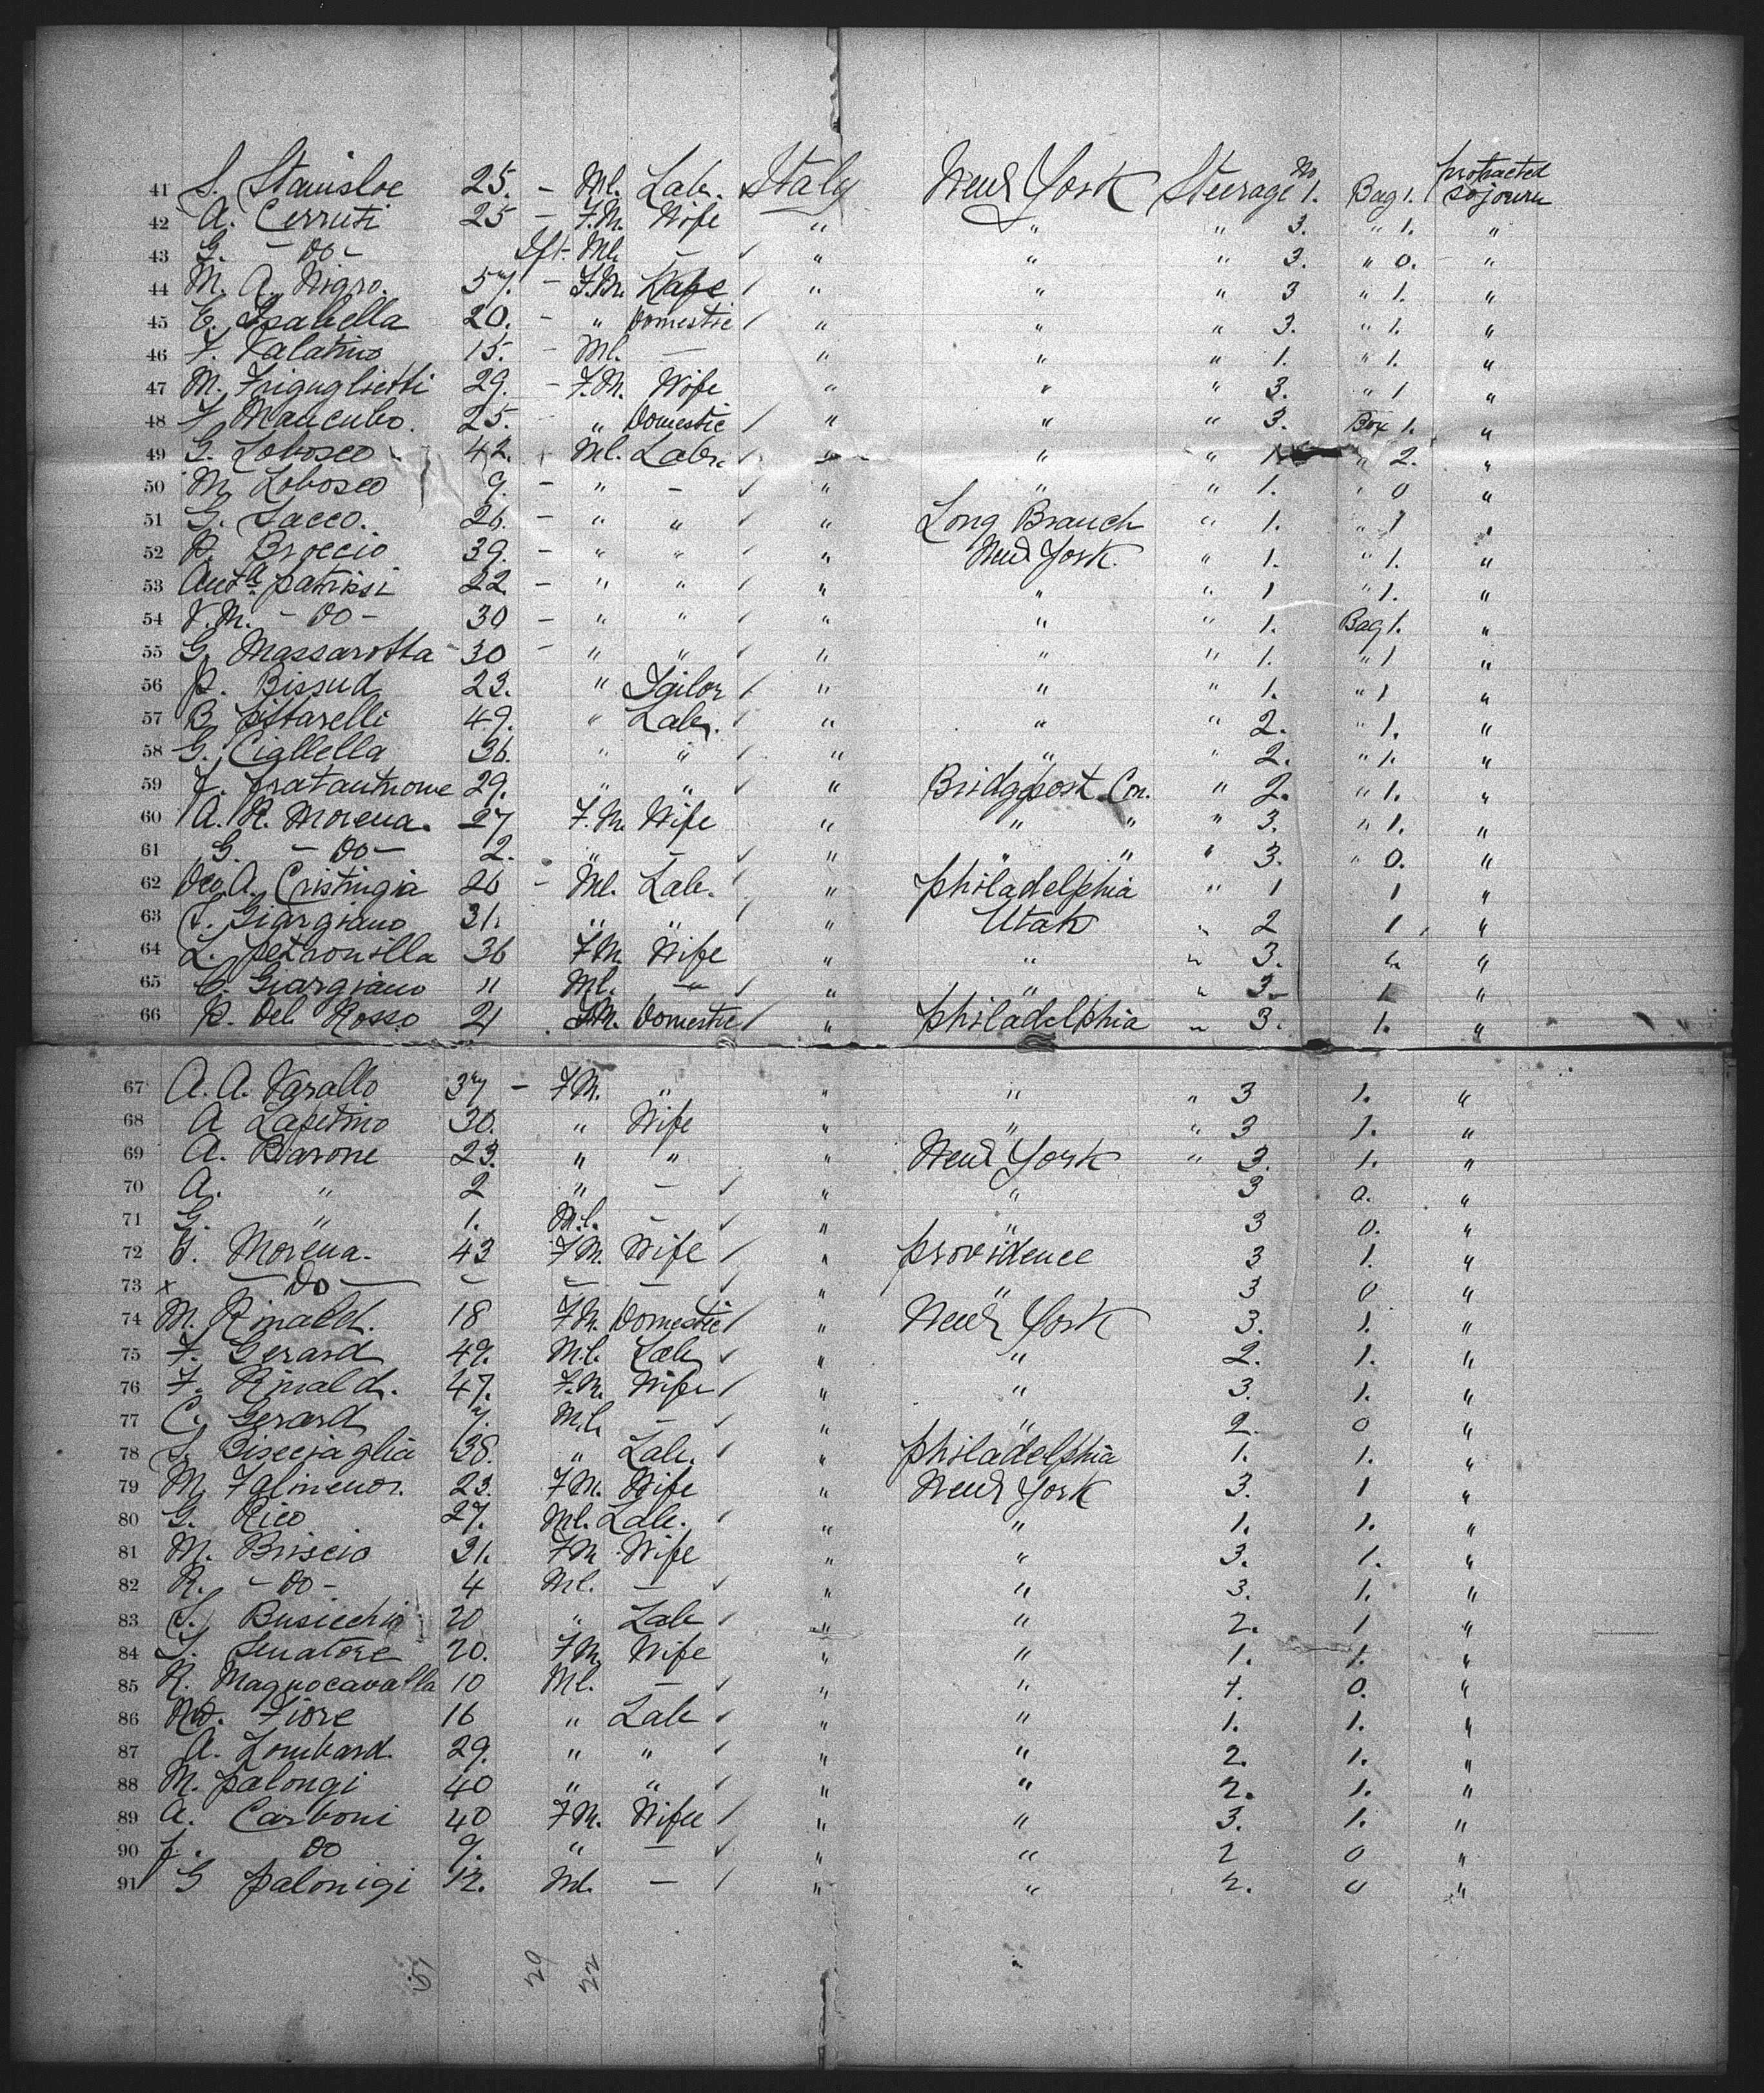 41 S. Stanisloe 25. - Ml. Lab. Italy New York Steerage No 1. Bag 1. protracted sojourn
42 A. Cerruti 25 - F.M. Wife " " " 3. " 1. "
43 G. - Do - Ift - Ml. - " " " 3. " 0. "
44 M. A. Nigro. 57. - F.M. " " " 3 " 1. "
45 E. Isabella 20. - " Domestic " " " 3. " 1. "
46 F. Valatino 15. - Ml. — " " " 1. " 1. "
47 M. Friguglietti 29. - F.M. Wife " " " 3. " 1 "
48 F. Mancubo. 25. - " Domestic " " " 3. Box 1. "
49 G. Lobosco 42. - Ml. Labr. " " " 1. " 2. "
50 M. Lobosco 9. - " - " " " 1. " 0 "
51 G. Sacco. 26. - " " " Long Branch " 1. " 1 "
52 P. Broccio 39. - " " " New York. " 1. " 1. "
53 Anta patrissi 22. - " " " " " 1 " 1. "
54 V. M. - Do - 30 - " " " " " 1. Bag 1. "
55 G. Massarotta 30 - " " " " " 1. " 1 "
56 P. Bissud 23. " Tailor " " " 1. " 1 "
57 B. pittarelli 49. " Lab. " " " 2. " 1. "
58 G. Ciallella 36. " " " " " 2. " 1. "
59 F. fratantuone 29. " " " Bridgport Con. " 2. " 1. "
60 A. R. Morena. 27 F.M. Wife " " " " 3. " 1. "
61 G. - Do - 2. " - " " " " 3. " 0. "
62 Deo. A. Cristingia 26 - Ml. Lab. " philadelphia " 1 1 "
63 S. Giargiano 31. " " " Utah " 2 1 "
64 L. petronilla 36 F.M. Wife " " " 3. " "
65 C. Giargiano 11 Ml. — " " " 3 1 "
66 P. Del Rosso 21 F.M. Domestic " philadelphia " 3. 1. "
67 A. A. Varallo 37 - F.M. " " " " 3 1. "
68 A Lapetino 30. " Wife " " " 3 1. "
69 A. Barone 23. " " " New York " 3. 1. "
70 A. " 2 " - " " 3 0. "
71 G. " 1. Ml. - " " 3 0. "
72 Morena. 43 F.M. Wife " providence 3 1. "
73 x — Do — - - - " " 3 0 "
74 M. Rinald. 18 F.M. Domestic " New York 3. 1. "
75 F. Gerard 49. Ml. Lab " " 2. 1. "
76 F. Rinald. 47. F.M. Wife " " 3. 1. "
77 C. Gerard 7. Ml. - " " 2. 0 "
78 S. Bisecciaglia 38. " Lab. " philadelphia 1. 1. "
79 M. Falimenor. 23. F.M. Wife " New York 3. 1 "
80 G. Rico 27. Ml. Lab. " " 1. 1. "
81 M. Briscio 31. F.M. Wife " " 3. 1. "
82 R. - Do - 4 Ml. — " " 3. 1. "
83 S. Busicchio 20 " Lab " " 2. 1 "
84 S. Senatore 20. F.M. Wife " " 1. 1. "
85 R. Magnocavalla 10 Ml. — " " 1. 0. "
86 Fiore 16 " Lab " " 1. 1. "
87 A. Lombard. 29. " " " " 2. 1. "
88 M. palongi 40 " " " " 2. 1. "
89 A. Carboni 40 F.M. Wife " " 3. 1. "
90 f. Do 9. " — " " 2 0 "
91 G palonigi 12. Ml. — " " 2. 0 "
51 29 22